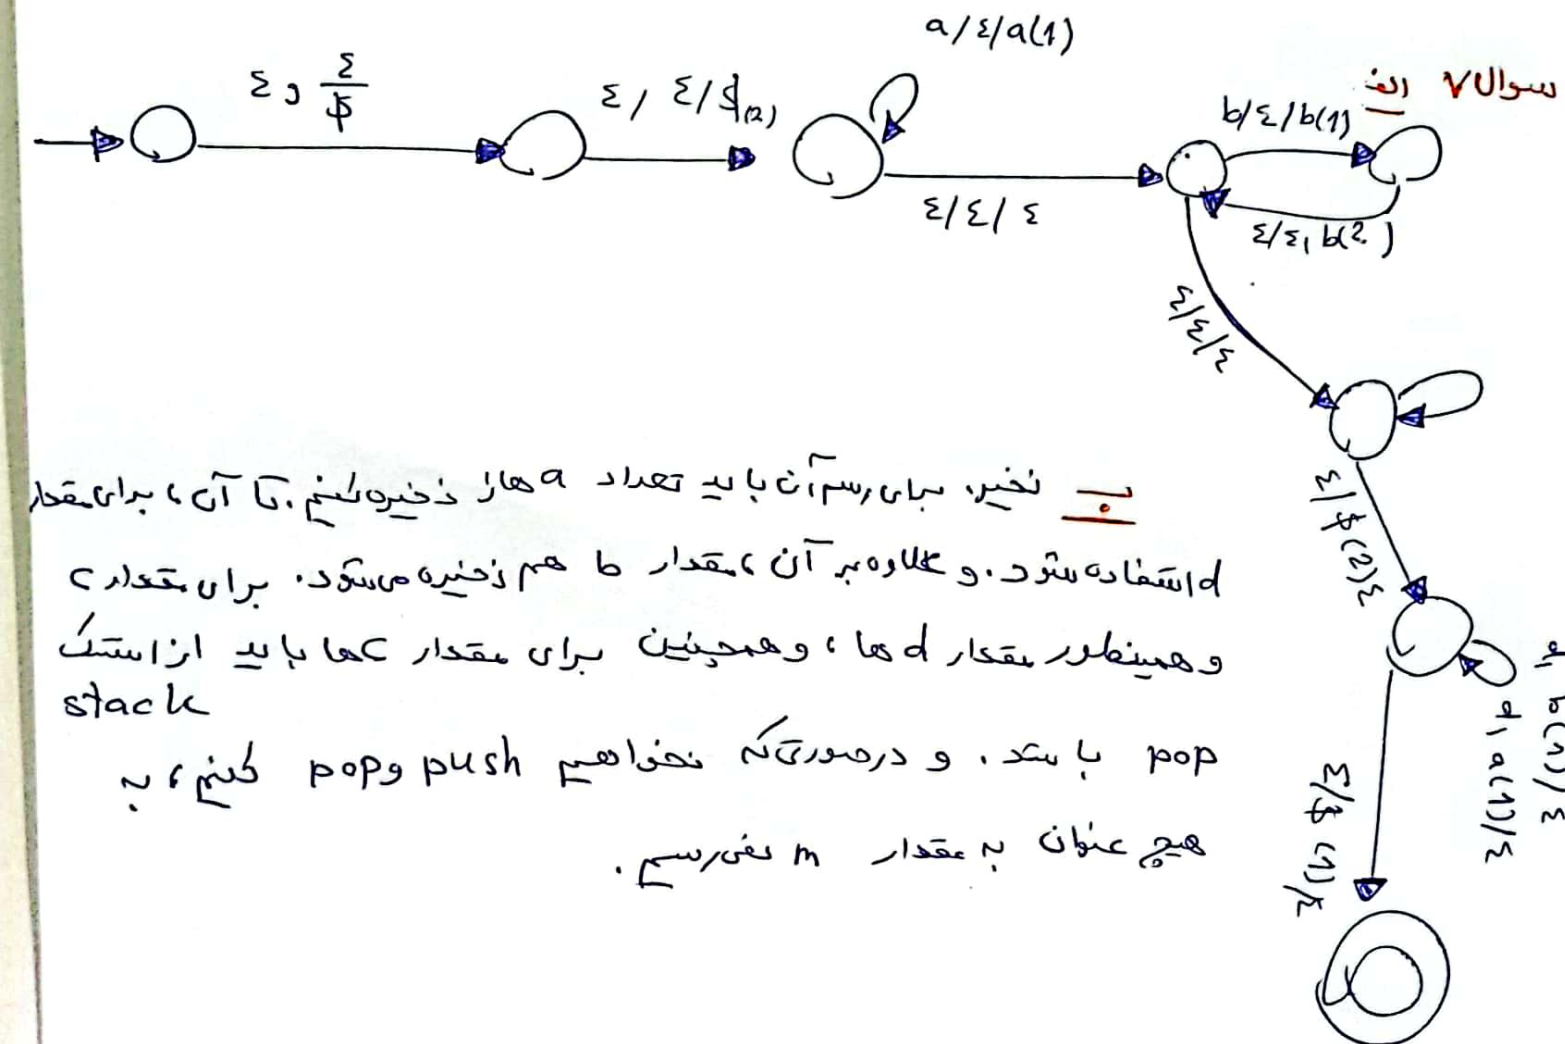 سوال ۷ الف
a/ε/a(1)
ε و ε/$
ε, ε/$(2)
b/ε/b(1)
ε/ε/ε
ε/ε, b(2)
ε/ε/ε
ب نخیر، برای رسم آن باید تعداد a ها را ذخیره کنیم. تا آن، برای مقدار
d استفاده شود. و علاوه بر آن، مقدار b هم ذخیره می‌شود. برای مقدار c
و همینطور مقدار d ها، و همچنین برای مقدار c ها باید از استک
stack
pop باشد. و درصورتی‌که نخواهیم push و pop کنیم، به
هیچ عنوان به مقدار m نمی‌رسیم.
ε/$(2)/ε
d, a(1)/ε
ε/$(1)/ε